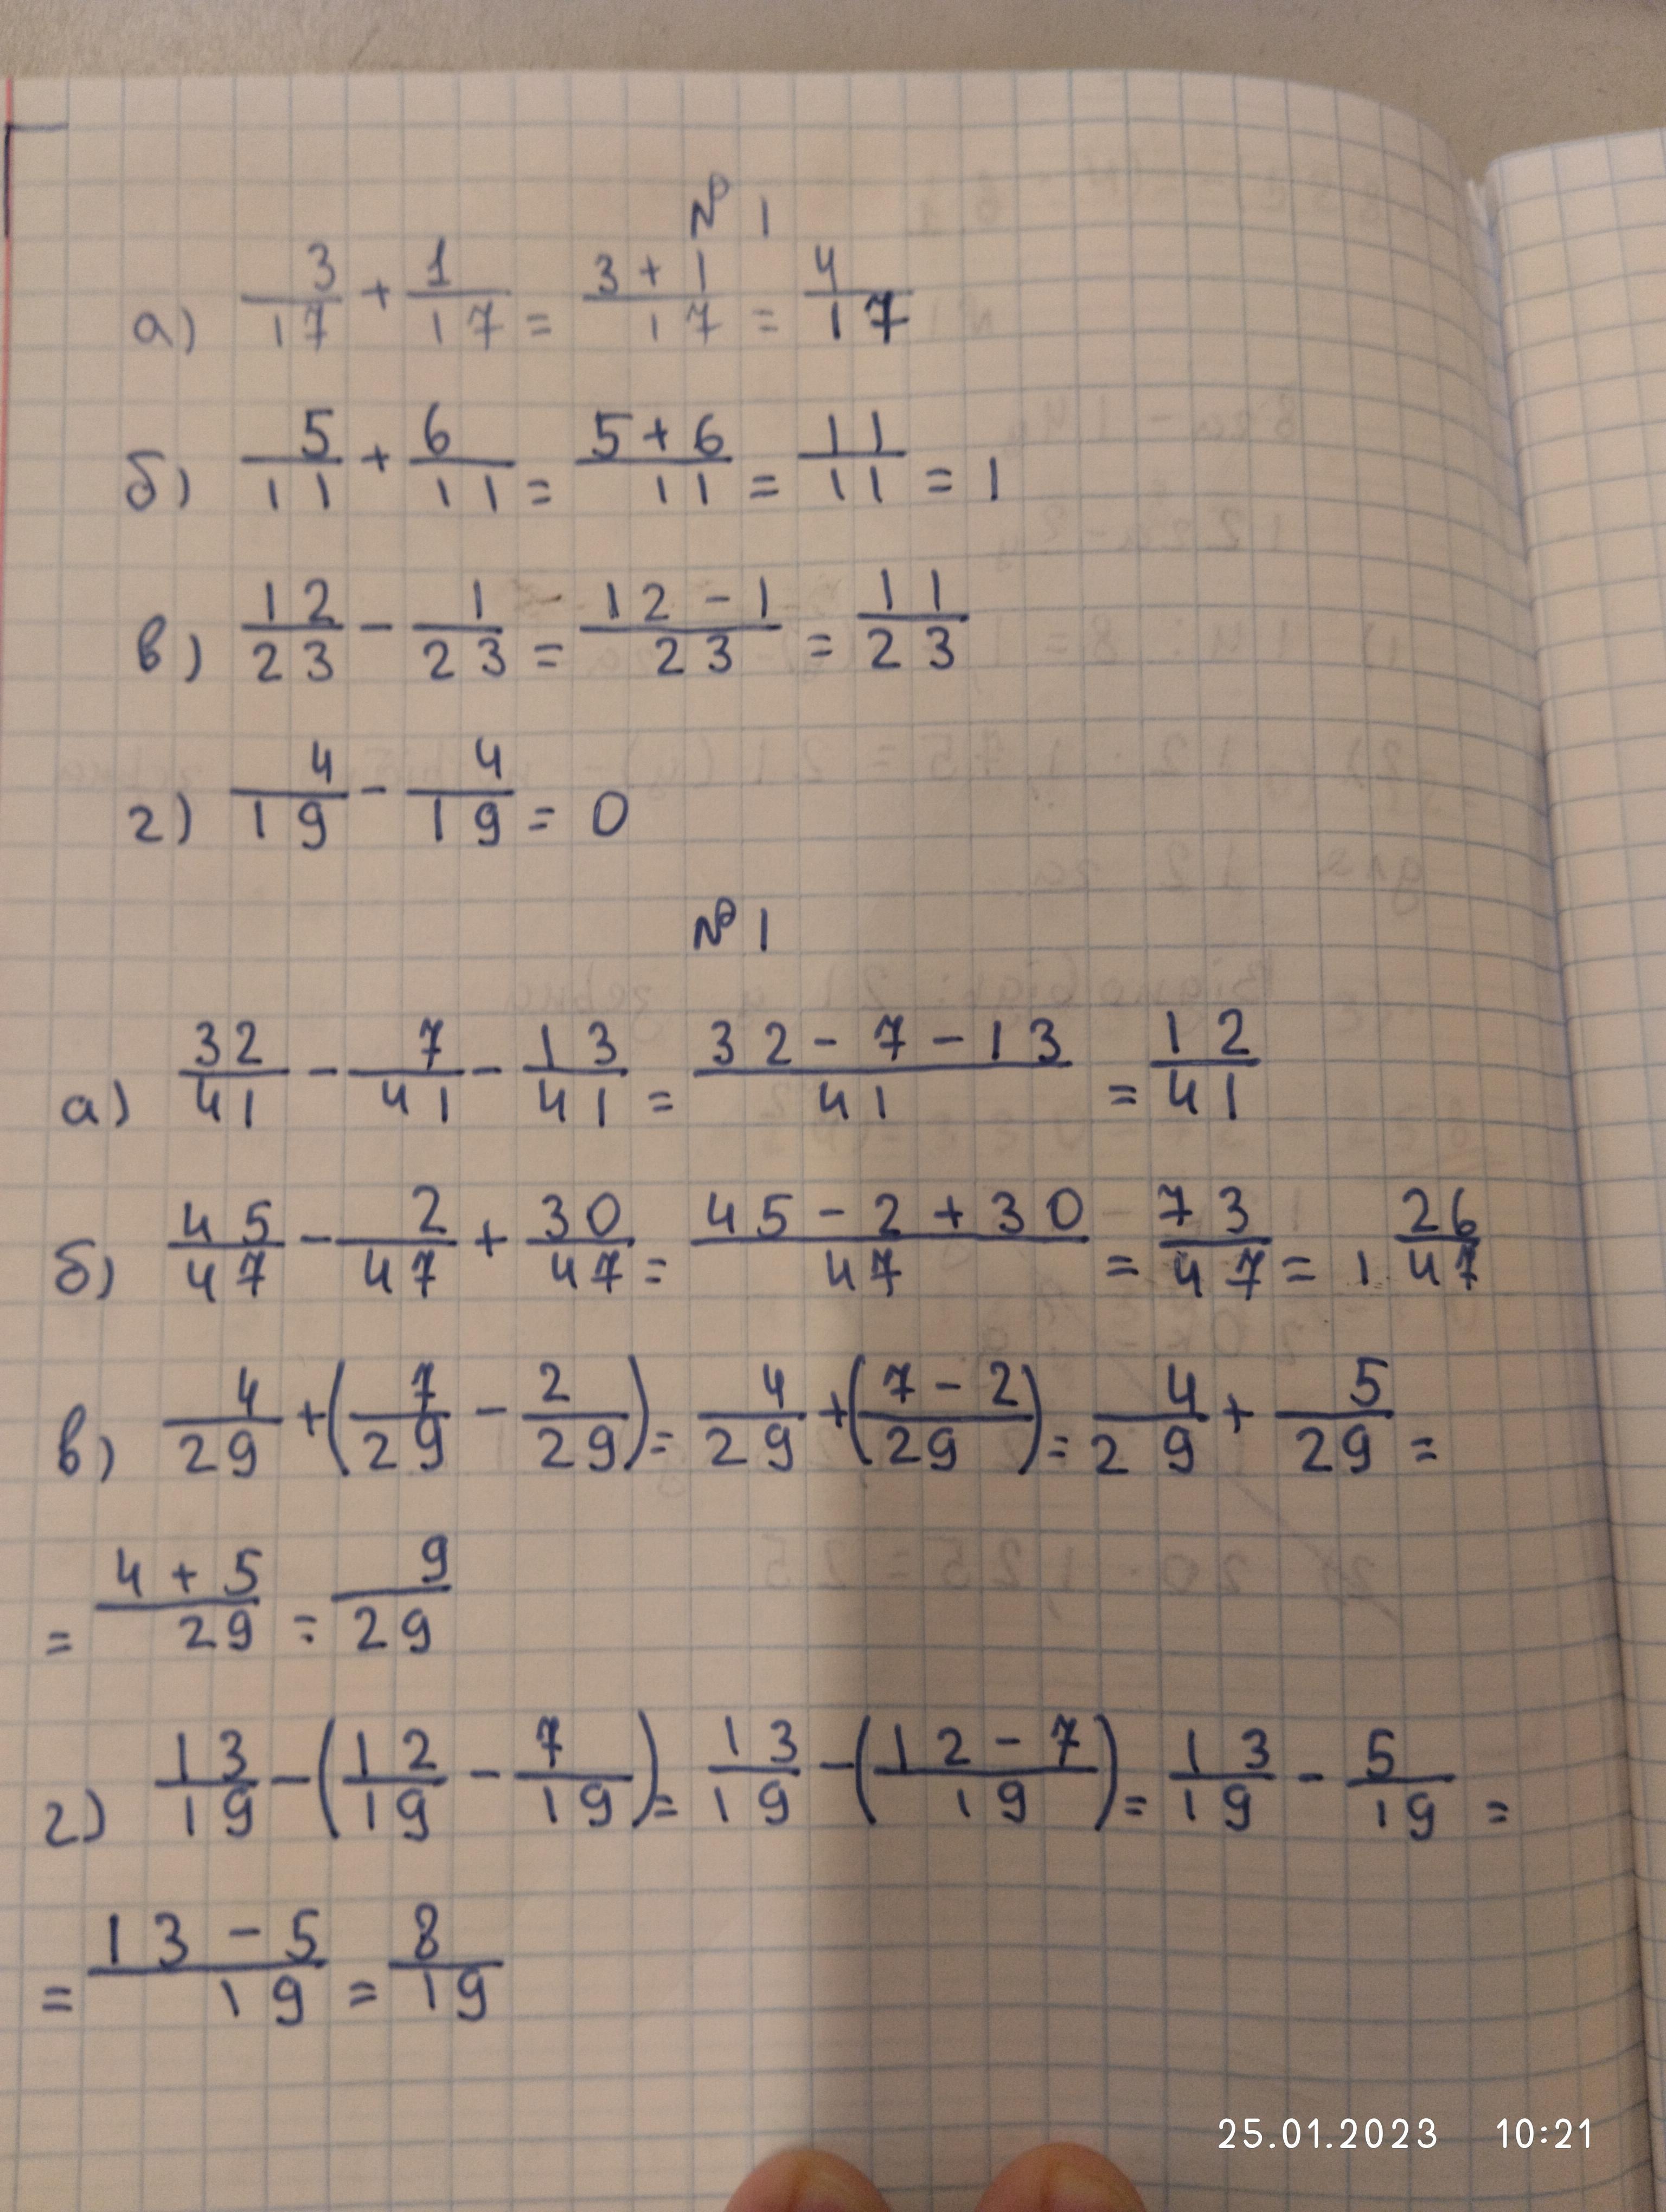 № 1
а) 3/17 + 1/17 = 3 + 1/17 = 4/17
б) 5/11 + 6/11 = 5 + 6/11 = 11/11 = 1
в) 12/23 - 1/23 = 12 - 1/23 = 11/23
г) 4/19 - 4/19 = 0
№ 1
а) 32/41 - 7/41 - 13/41 = 32 - 7 - 13/41 = 12/41
б) 45/47 - 2/47 + 30/47 = 45 - 2 + 30/47 = 73/47 = 1 26/47
в) 4/29 + (7/29 - 2/29) = 4/29 + (7 - 2/29) = 4/29 + 5/29 =
= 4 + 5/29 = 9/29
г) 13/19 - (12/19 - 7/19) = 13/19 - (12 - 7/19) = 13/19 - 5/19 =
= 13 - 5/19 = 8/19
25.01.2023 10:21